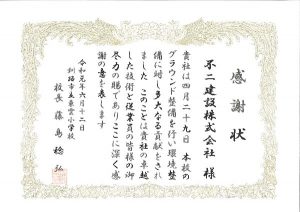 感謝状
不二建設株式会社 様
貴社は四月二十九日 本校の
グラウンド整備を行い環境整
備に対し多大なる貢献をされ
ました このことは貴社の卓越
した技術と従業員の皆様の御
尽力の賜でありここに深く感
謝の意を表します
令和元年六月十二日
釧路市立東雲小学校
校長 藤島 稔弘